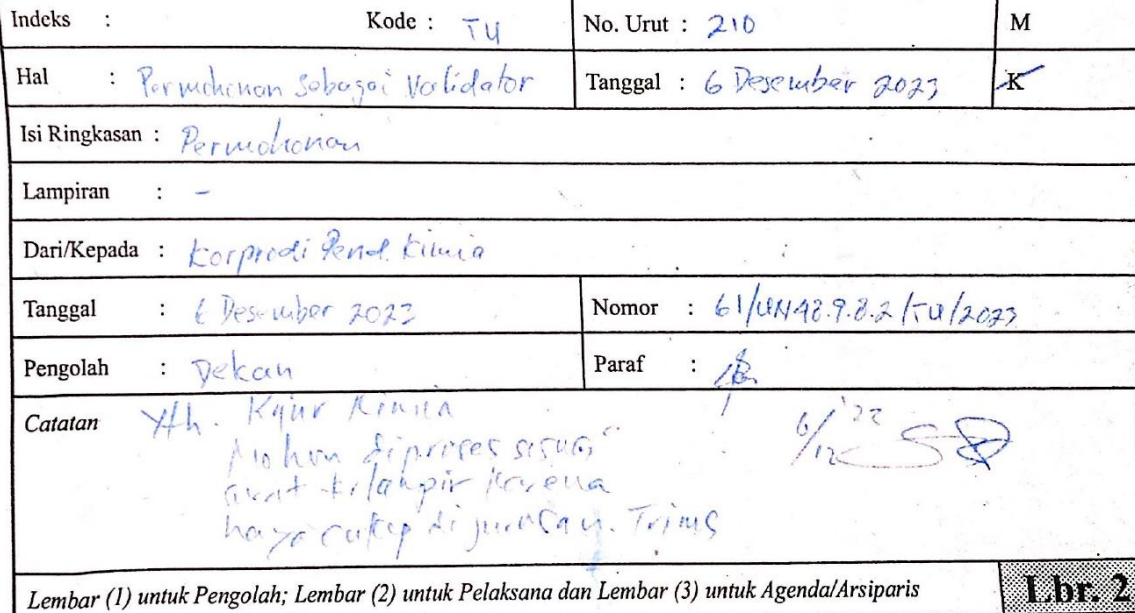 Indeks : Kode : TU No. Urut : 210 M
Hal : Permohonan sebagai Validator Tanggal : 6 Desember 2023 K
Isi Ringkasan : Permohonan
Lampiran : -
Dari/Kepada : Korprodi Pend. Kimia
Tanggal : 6 Desember 2023 Nomor : 61/UN48.9.8.2/TU/2023
Pengolah : Dekan Paraf :
Catatan Yth. Kajur Kimia
Mohon diproses sesuai 6/12
surat terlampir karena
cukup di jurusan. Trims
Lembar (1) untuk Pengolah; Lembar (2) untuk Pelaksana dan Lembar (3) untuk Agenda/Arsiparis Lbr. 2